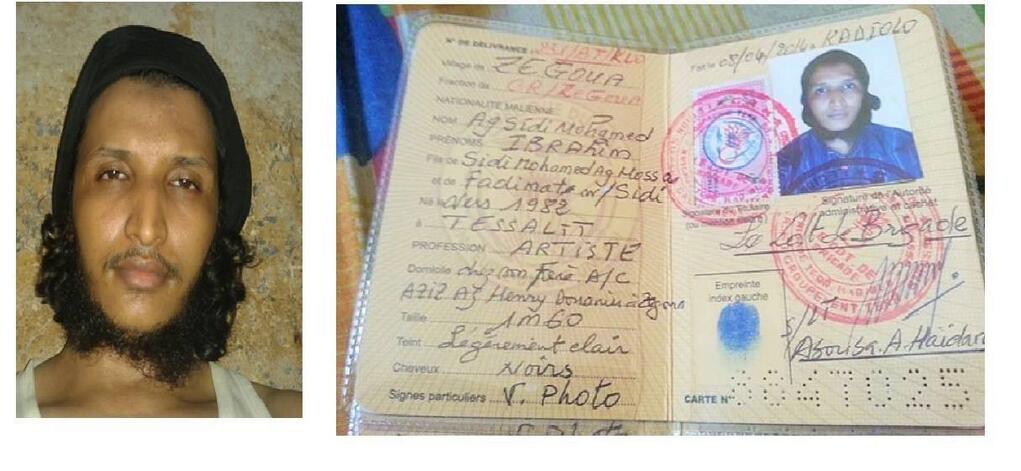 N° DE DÉLIVRANCE
Village de ZEGOUA
Fraction de CR/ZeGoua
NATIONALITÉ MALIENNE
NOM Ag Sidi Mohamed
PRÉNOMS IBRAHIM
Fils de Sidi Mohamed Ag Mossa
et de Fadimata W/Sidi
Né le Vers 1982
à TESSALIT
PROFESSION ARTISTE
Domicile chez son frère A/C
AZIZ Ag Henry à Zegoua
Taille 1M60
Teint Légèrement clair
Cheveux Noirs
Signes particuliers V. Photo
Fait le 08/04/2014 à KADIOLO
Signature de l'Autorité
administrative et cachet
Le Cdt de Brigade
Empreinte
index gauche
A. Haidara
CARTE N°